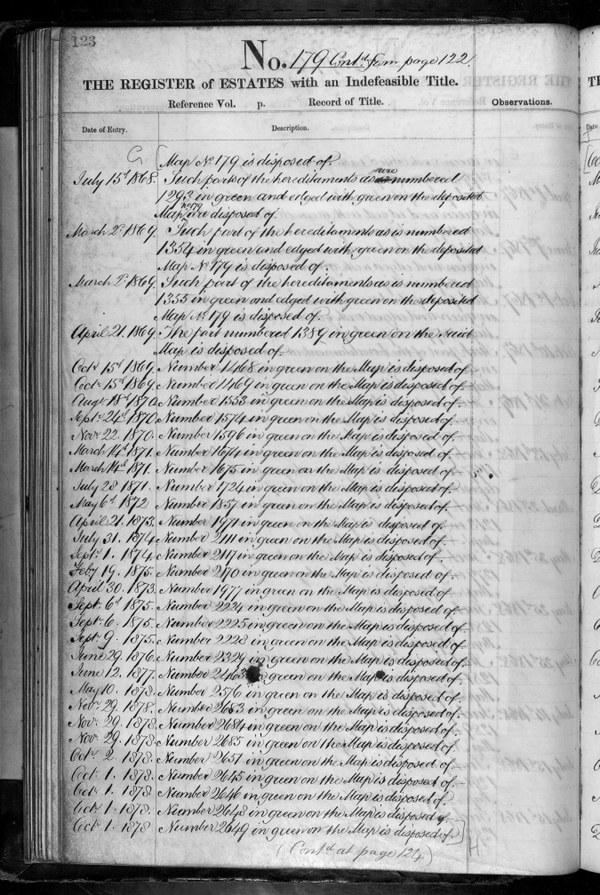 123
No. 179 Contd from page 122.
THE REGISTER of ESTATES with an Indefeasible Title.
Reference Vol. p. Record of Title. Observations.
Date of Entry. Description.
G [ Map No 179 is disposed of.
July 15th 1868. Such parts of the hereditaments as were numbered
1293 in green and edged with green on the deposited
Map No 179 are disposed of.
March 2d 1869. Such part of the hereditaments as is numbered
1354 in green and edged with green on the deposited
Map No 179 is disposed of.
March 2d 1869. Such part of the hereditaments as is numbered
1355 in green and edged with green on the deposited
Map No 179 is disposed of.
April 21. 1869. The part numbered 1389 in green on the said
Map is disposed of.
Octr 15th 1869. Number 1468 in green on the Map is disposed of.
Octr 15th 1869. Number 1469 in green on the Map is disposed of.
Augt 18th 1870. Number 1553 in green on the Map is disposed of.
Septr 24th 1870. Number 1574 in green on the Map is disposed of.
Novr 22. 1870. Number 1596 in green on the Map is disposed of.
March 14th 1871. Number 1674 in green on the Map is disposed of.
March 14th 1871. Number 1675 in green on the Map is disposed of.
July 28 1871. Number 1724 in green on the Map is disposed of.
May 6th 1872 Number 1857 in green on the Map is disposed of.
April 21. 1873. Number 1971 in green on the Map is disposed of.
July 31. 1874. Number 2111 in green on the Map is disposed of.
Septr 1. 1874. Number 2117 in green on the Map is disposed of.
Feby 19. 1875. Number 2170 in green on the Map is disposed of.
April 30. 1873. Number 1977 in green on the Map is disposed of.
Sept. 6th 1875. Number 2224 in green on the Map is disposed of.
Sept. 6. 1875. Number 2225 in green on the Map is disposed of.
Sept. 9. 1875. Number 2228 in green on the Map is disposed of.
June 29. 1876. Number 2329 in green on the Map is disposed of.
June 12. 1877. Number 2463 in green on the Map is disposed of.
May 10. 1878. Number 2576 in green on the Map is disposed of.
Novr 29. 1878. Number 2683 in green on the Map is disposed of.
Nov. 29. 1878. Number 2684 in green on the Map is disposed of.
Nov. 29. 1878. Number 2685 in green on the Map is disposed of.
Octr 2. 1878. Number 2651 in green on the Map is disposed of.
Oct. 1. 1878. Number 2645 in green on the Map is disposed of.
Oct. 1. 1878. Number 2646 in green on the Map is disposed of.
Oct. 1. 1878. Number 2648 in green on the Map is disposed of.
Oct. 1. 1878 Number 2649 in green on the Map is disposed of. ] H
(Contd at page 124)